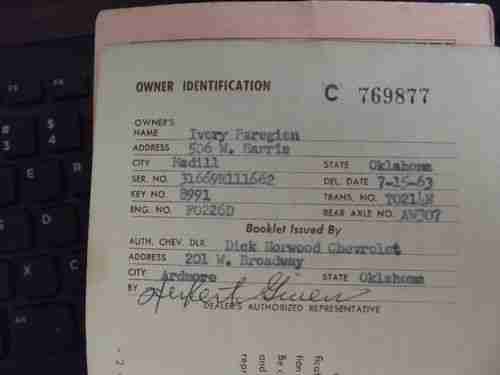 OWNER IDENTIFICATION C 769877
OWNER'S
NAME Ivory Faregion
ADDRESS 506 W. Harris
CITY Madill STATE Oklahoma
SER. NO. 31669B111662 DEL. DATE 7-15-63
KEY NO. 8991 TRANS. NO.
ENG. NO. F0226D REAR AXLE NO. AW307
Booklet Issued By
AUTH. CHEV. DLR. Dick Norwood Chevrolet
ADDRESS 201 W. Broadway
CITY Ardmore STATE Oklahoma
BY
DEALER'S AUTHORIZED REPRESENTATIVE